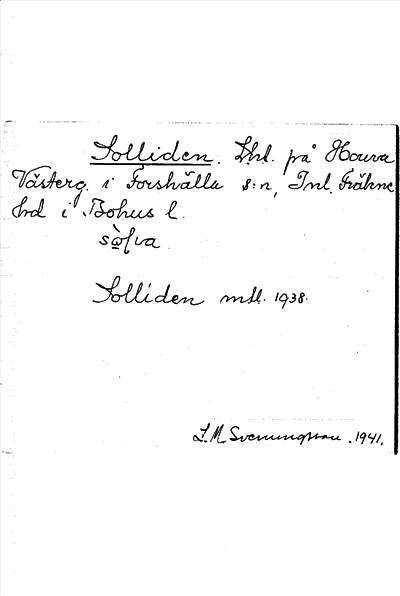 Solliden. Lht. på Houva
Västerg. i Forshälla s:n, Inl. Fräkne
hrd i Bohus l.
Solliden mtl. 1938.
S. M. Svenungsson. 1941.